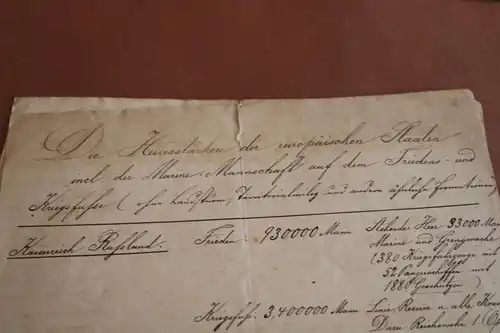 Die Heeresstärken der europäischen Staaten
incl. der Marine-Mannschaft auf dem Friedens- und
Kriegsfusse (ohne Landsturm, Territorialmiliz und andern ähnlichen Formationen
Kaiserreich Rußland.
Frieden: 930000 Mann
Stehendes Heer 33000 Ma
Marine und Grenzwache
(380 Kriegsfahrzeuge mit
52 Panzerschiffen mit
1880 Geschützen)
Kriegsfuß: 3,400000 Mann
Linie, Reserve u. alle Kosa
Dazu Reichswehr 1.